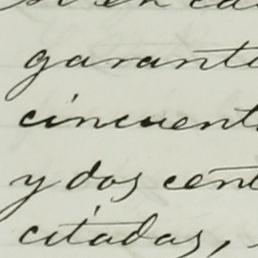 si en ca
garante
cincuent
y dos cent
citadas,